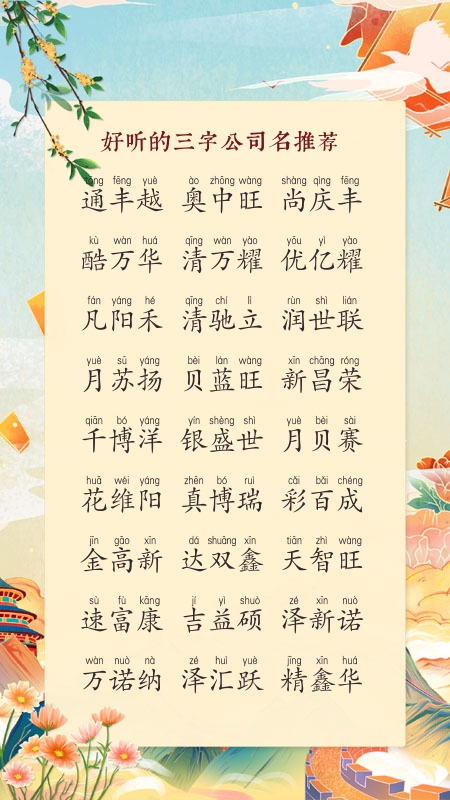 好听的三字公司名推荐
tōng fēng yuè ào zhōng wàng shàng qìng fēng
通丰越 奥中旺 尚庆丰
kù wàn huá qīng wàn yào yōu yì yào
酷万华 清万耀 优亿耀
fán yáng hé qīng chí lì rùn shì lián
凡阳禾 清驰立 润世联
yuè sū yáng bèi lán wàng xīn chāng róng
月苏扬 贝蓝旺 新昌荣
qiān bó yáng yín shèng shì yuè bèi sài
千博洋 银盛世 月贝赛
huā wéi yáng zhēn bó ruì cǎi bǎi chéng
花维阳 真博瑞 彩百成
jīn gāo xīn dá shuāng xīn tiān zhì wàng
金高新 达双鑫 天智旺
sù fù kāng jí yì shuò zé xīn nuò
速富康 吉益硕 泽新诺
wàn nuò nà zé huì yuè jīng xīn huá
万诺纳 泽汇跃 精鑫华